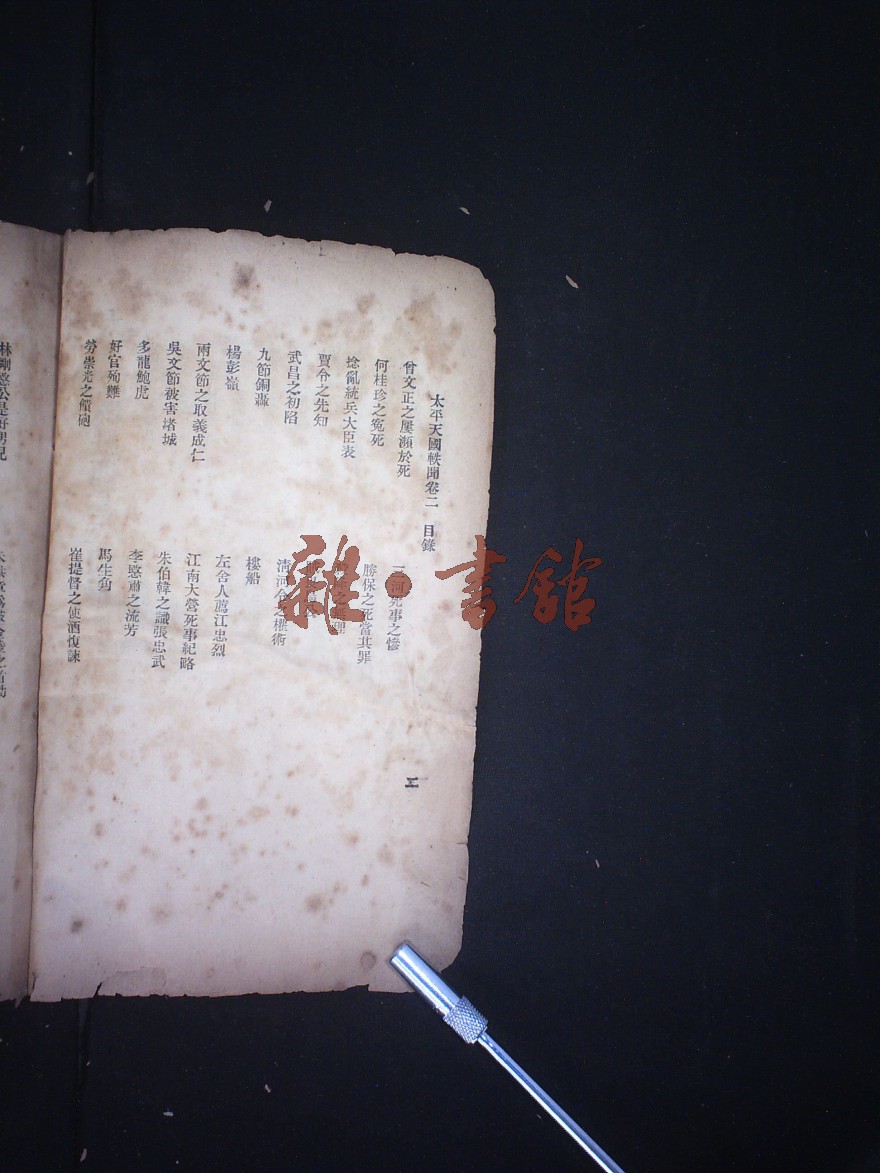 太平天國軼聞卷二　目錄
二
曾文正之屢瀕於死
三河死事之慘
何桂珍之冤死
勝保之死當其罪
捻亂統兵大臣表
賈令之先知
武昌之初陷
清河令之權術
九節銅轟
樓船
楊彭嶺
左舍人薦江忠烈
兩文節之取義成仁
江南大營死事紀略
吳文節被害堵城
朱伯韓之識張忠武
多龍鮑虎
李愍肅之流芳
好官殉難
馬生角
勞崇光之償砲
崔提督之使酒愎諫
林剛愍公是好男兒
雜·書館